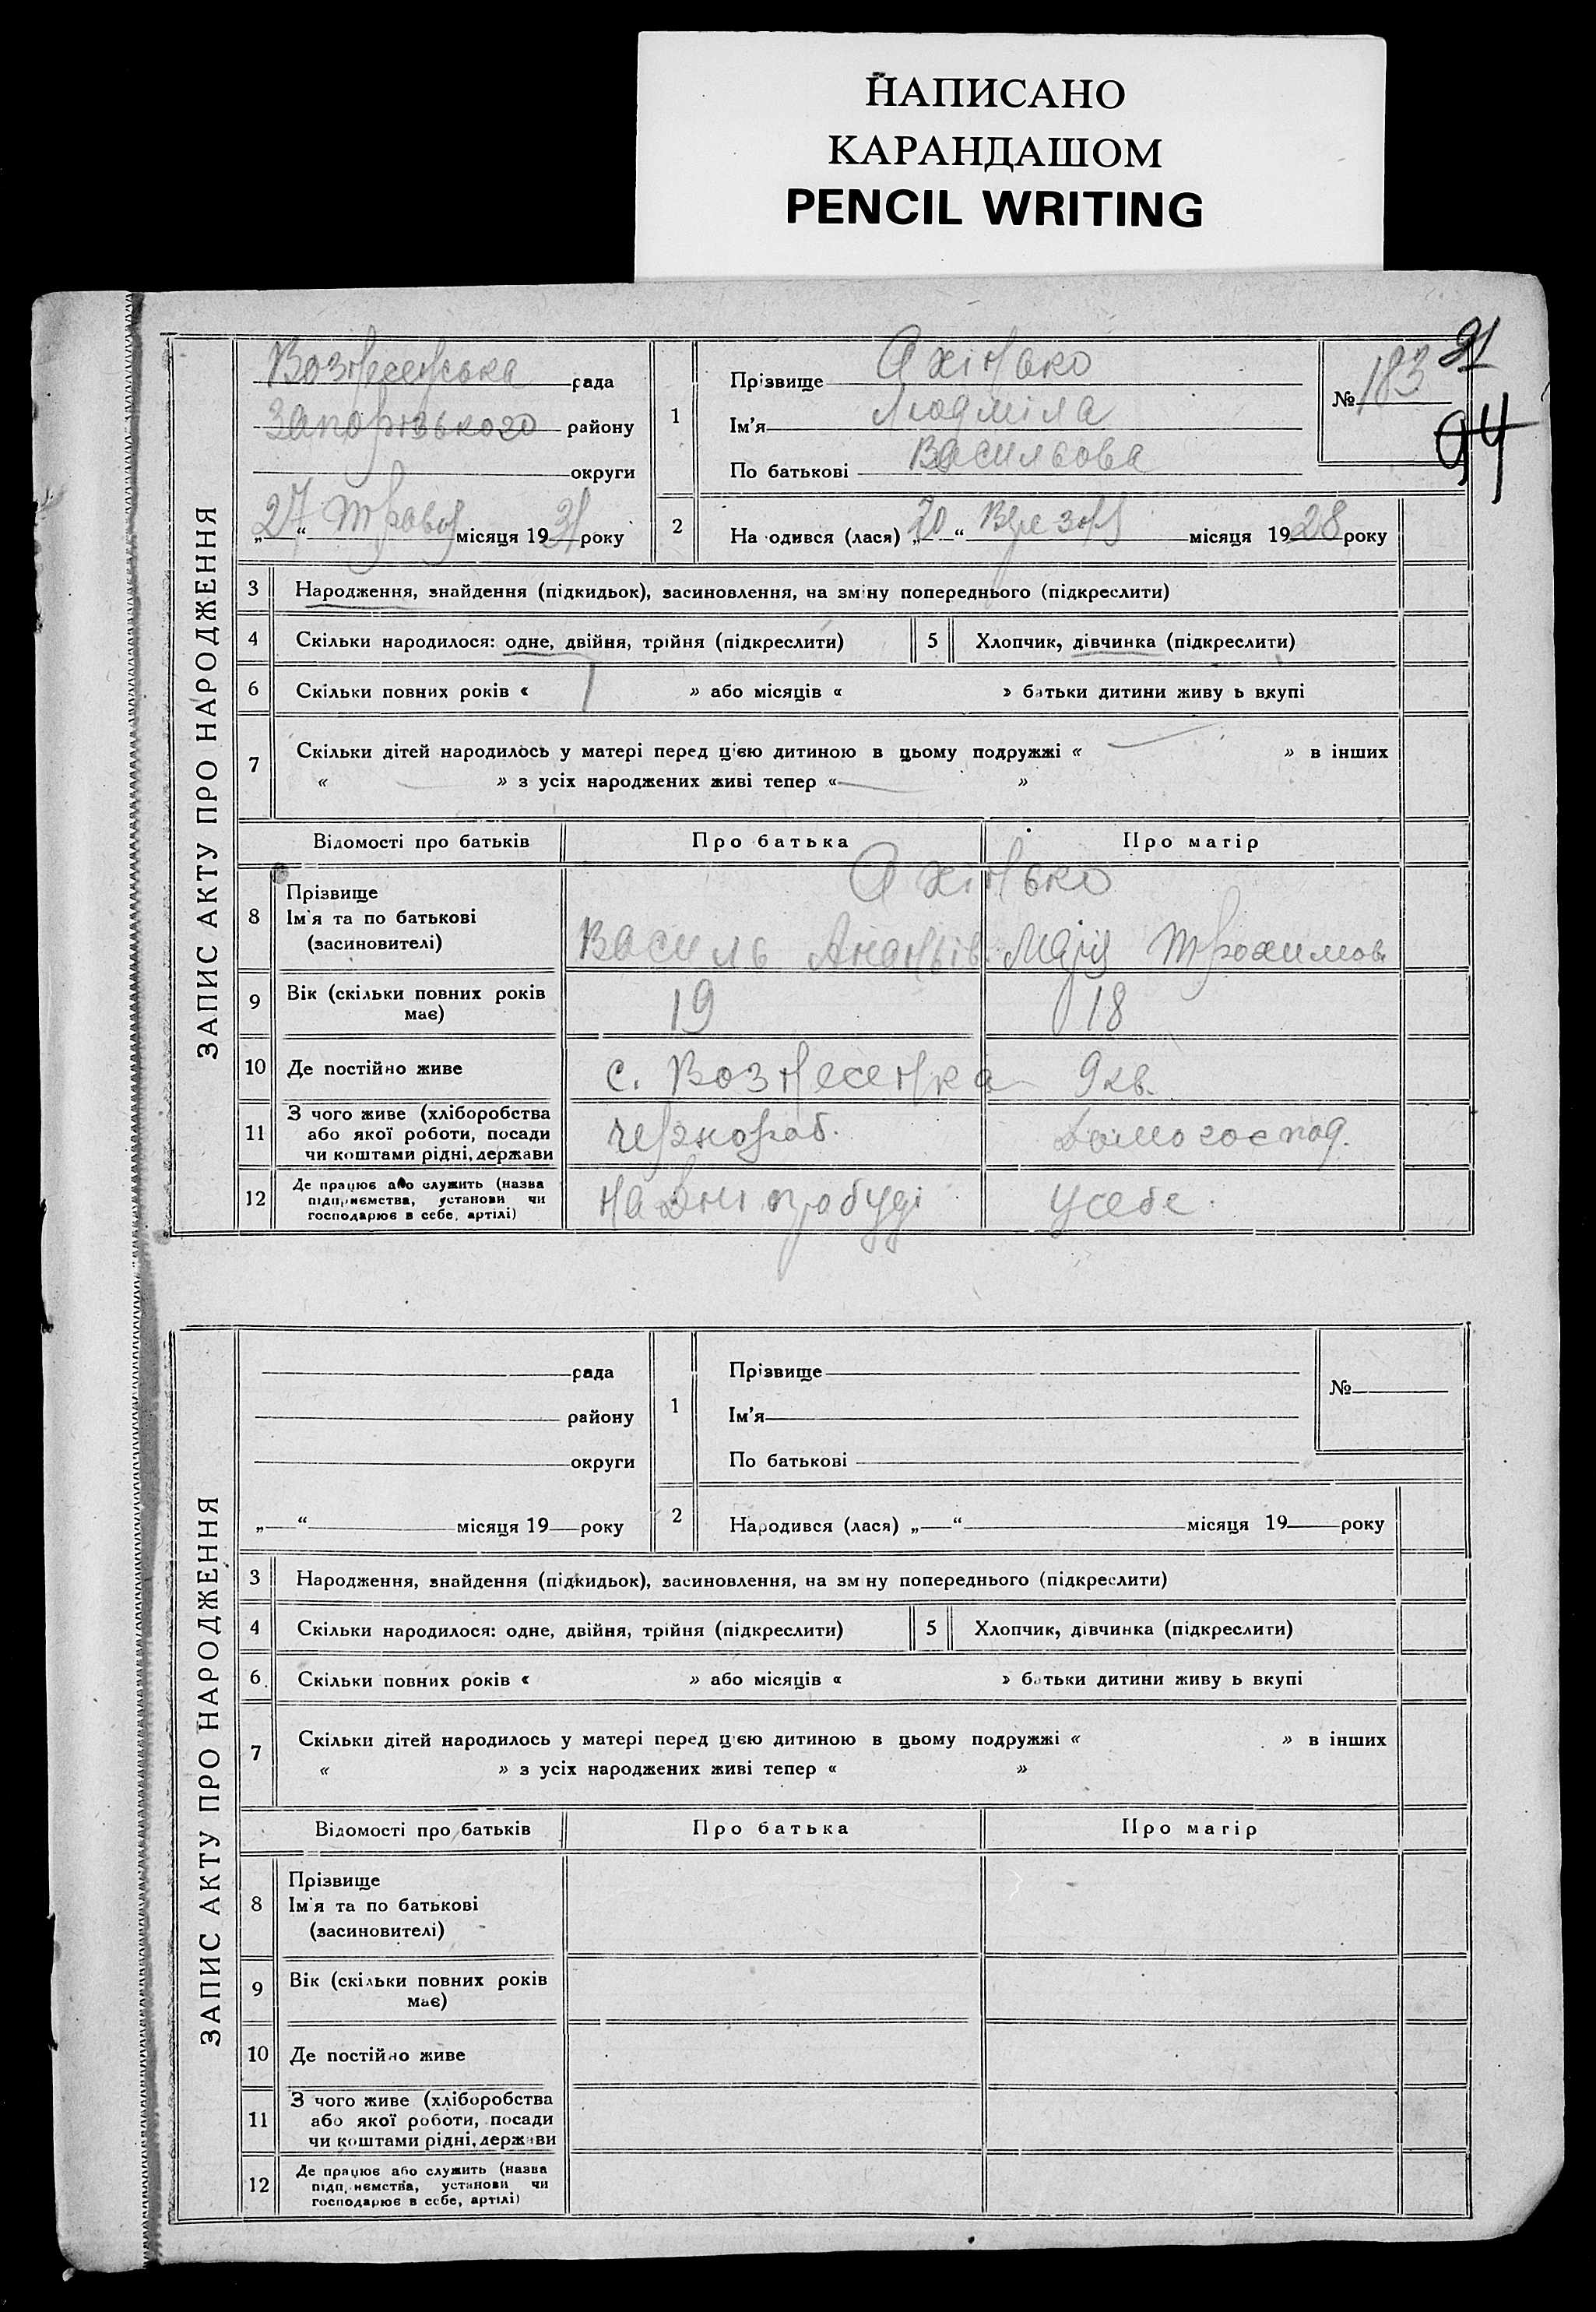 НАПИСАНО
КАРАНДАШОМ
PENCIL WRITING
91
94
ЗАПИС АКТУ ПРО НАРОДЖЕННЯ
Вознесенська рада
Запорізького району
округи
„27“ Травня місяця 1931 року
1
Прізвище Яхінько
Ім'я Людміла
По батькові Васильовa
№ 183
2 На одився (лася) „20“ Березня місяця 1928 року
3 Народження, знайдення (підкидьок), засиновлення, на зміну попереднього (підкреслити)
4 Скільки народилося: одне, двійня, трійня (підкреслити) 5 Хлопчик, дівчинка (підкреслити)
6 Скільки повних років « 1 » або місяців « » батьки дитини живу ь вкупі
7 Скільки дітей народилось у матері перед цією дитиною в цьому подружжі « — » в інших
« — » з усіх народжених живі тепер «— »
Відомості про батьків Про батька Про матір
8 Прізвище Яхінько
Ім'я та по батькові
(засиновителі) Василь Ананьів. Марія Трохимов.
9 Вік (скільки повних років
має) 19 18
10 Де постійно живе с. Вознесенка 9 кв.
11 З чого живе (хліборобства
або якої роботи, посади
чи коштами рідні, держави чернораб. Домогоспод.
12 Де працює або служить (назва
підприємства, установи чи
господарює в себе, артілі) на Дніпробуді у себе.
ЗАПИС АКТУ ПРО НАРОДЖЕННЯ
рада
району
округи
„ “ місяця 19 року
1
Прізвище
Ім'я
По батькові
№
2 Народився (лася) „ “ місяця 19 року
3 Народження, знайдення (підкидьок), засиновлення, на зм ну попереднього (підкреслити)
4 Скільки народилося: одне, двійня, трійня (підкреслити) 5 Хлопчик, дівчинка (підкреслити)
6 Скільки повних років « » або місяців « » батьки дитини живу ь вкупі
7 Скільки дітей народилось у матері перед цією дитиною в цьому подружжі « » в інших
« » з усіх народжених живі тепер « »
Відомості про батьків Про батька Про матір
8 Прізвище
Ім'я та по батькові
(засиновителі)
9 Вік (скільки повних років
має)
10 Де постійно живе
11 З чого живе (хліборобства
або якої роботи, посади
чи коштами рідні, держави
12 Де працює або служить (назва
підприємства, установи чи
господарює в себе, артілі)